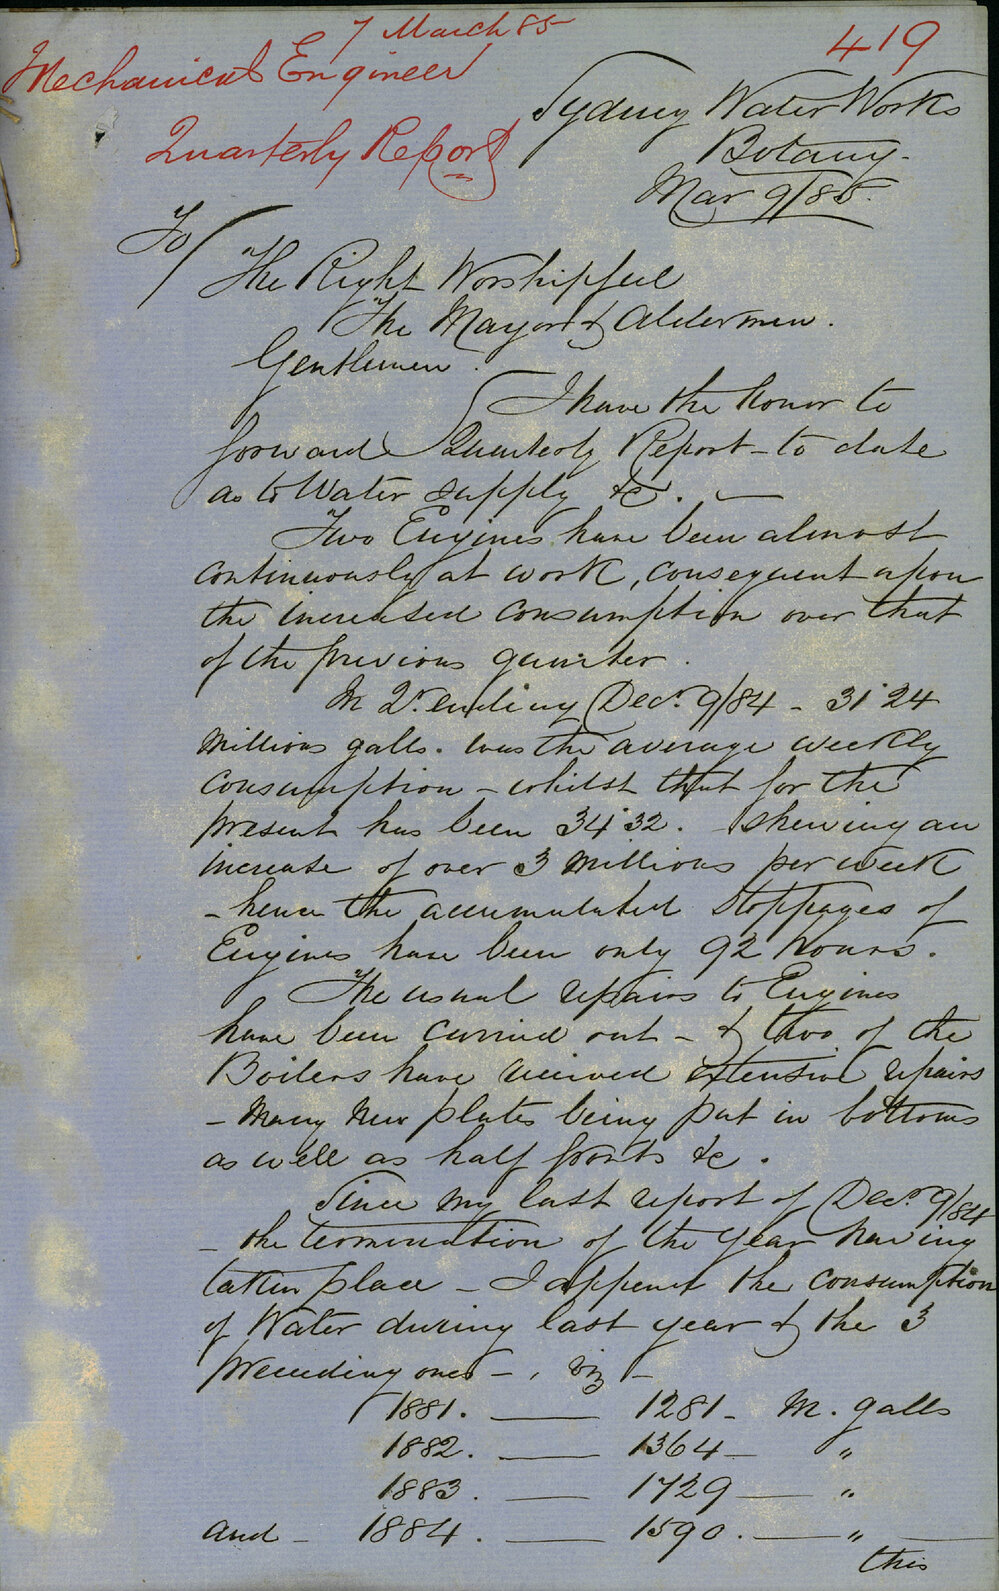 7 March 85
419
Mechanical Engineer
Quarterly Report
Sydney Water Works
Botany.
Mar 9/85.
To/
The Right Worshipful
The Mayor & Aldermen.
Gentlemen.
I have the honor to
forward Quarterly Report - to date
as to Water supply &c. —
Two Engines have been almost
continuously at work, consequent upon
the increased consumption over that
of the previous quarter.
In Qr. ending Decr. 9/84 - 31·24
Millions galls. was the average weekly
consumption - whilst that for the
present has been 34·32. - shewing an
increase of over 3 Millions per week
- hence the accumulated stoppages of
Engines have been only 92 hours.
The usual repairs to Engines
have been carried out - & two of the
Boilers have received extensive repairs
- Many New plates being put in bottoms
as well as half fronts &c.
Since my last report of Decr. 9/84
- the termination of the year having
taken place - I append the consumption
of Water during last year & the 3
preceding ones -, viz -
1881. — 1281 - M. galls
1882. — 1364 — "
1883. — 1729 — "
and - 1884. — 1590. — " —
this